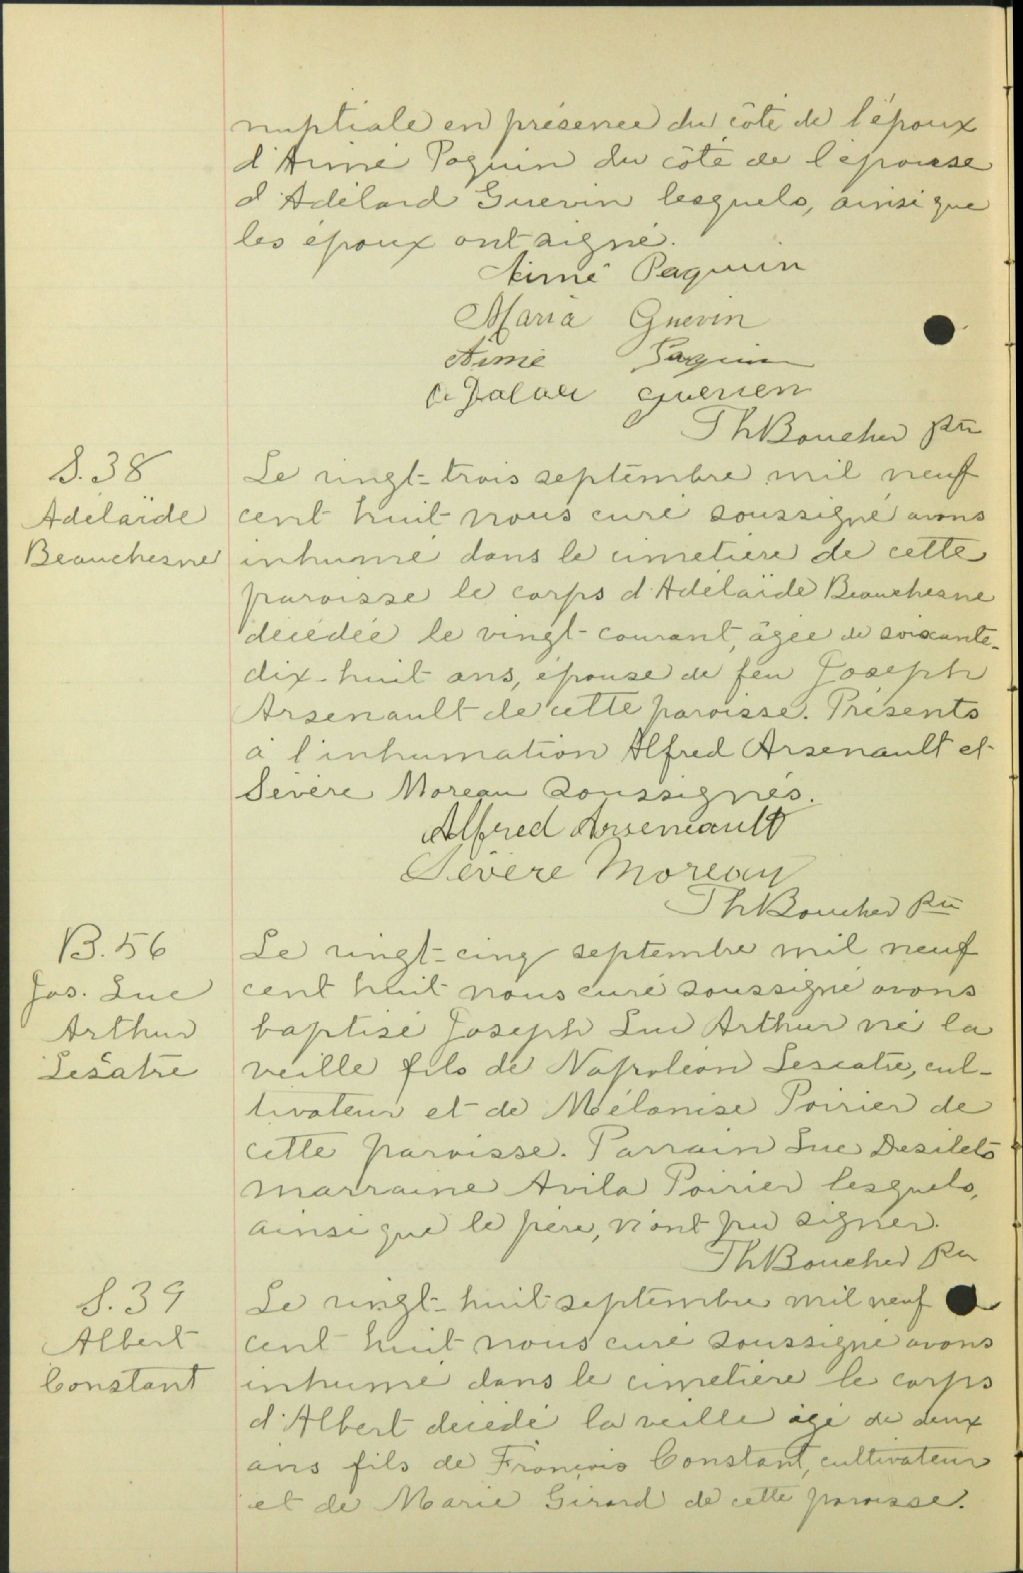 nuptiale en présence du côté de l'époux
d'Aimé Paquin du côté de l'épouse
d'Adélard Guevin lesquels, ainsi que
les époux ont signé.
Aimé Paquin
Maria Guevin
Aimé Paquin
Guerien
Th Boucher Ptre
S. 38
Adélaïde
Beauchesne
Le vingt-trois septembre mil neuf
cent huit nous curé soussigné avons
inhumé dans le cimetière de cette
paroisse le corps d'Adélaïde Beauchesne
décédée le vingt courant, âgée de soixante-
dix-huit ans, épouse de feu Joseph
Arsenault de cette paroisse. Présents
à l'inhumation Alfred Arsenault et
Sévère Moreau soussignés.
Alfred Arseneault
Sévère Moreau
Th Boucher Ptre
B. 56
Jos. Luc
Arthur
Lesâtre
Le vingt-cinq septembre mil neuf
cent huit nous curé soussigné avons
baptisé Joseph Luc Arthur né la
veille fils de Napoléon Lescatre, cul-
tivateur et de Mélanise Poirier de
cette paroisse. Parrain Luc Desilets
marraine Avila Poirier lesquels,
ainsi que le père, n'ont pu signer.
Th Boucher Ptre
S. 39
Albert
Constant
Le vingt-huit septembre mil neuf
cent huit nous curé soussigné avons
inhumé dans le cimetière le corps
d'Albert décédé la veille âgé de deux
ans fils de François Constant, cultivateur
et de Marie Girard de cette paroisse.